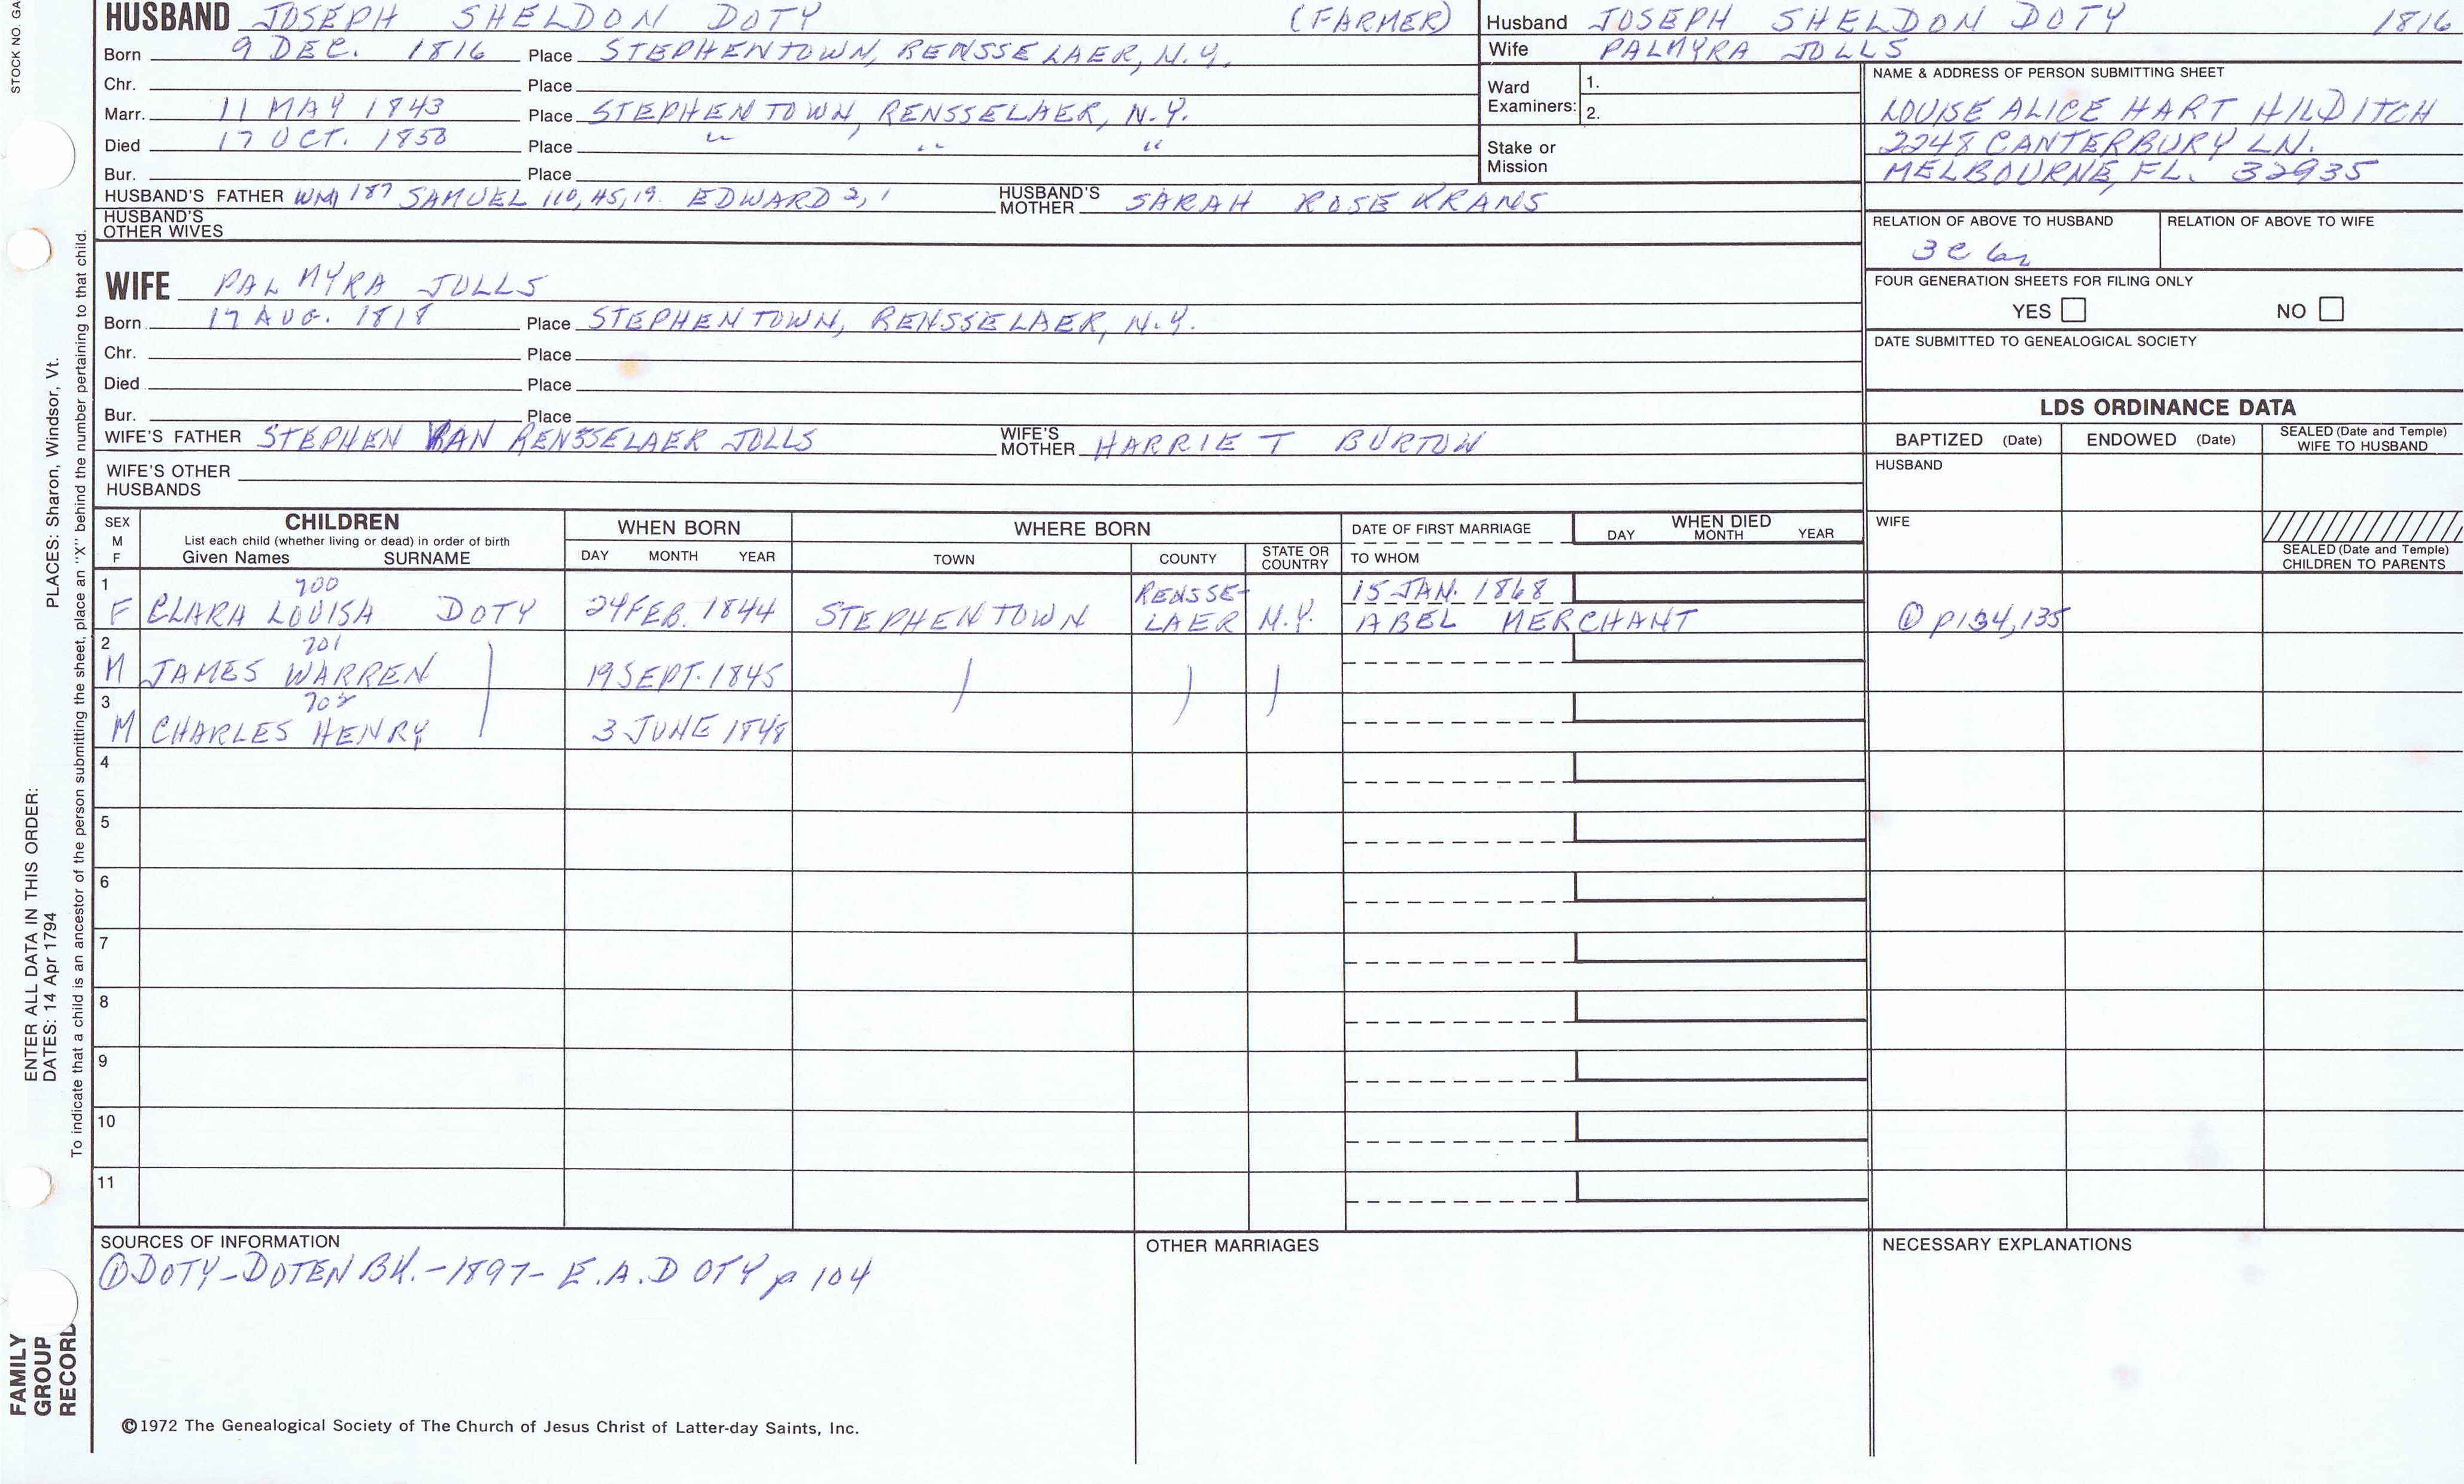 STOCK NO. GA
HUSBAND JOSEPH SHELDON DOTY (FARMER)
Born 9 DEC. 1816 Place STEPHENTOWN, RENSSELAER, N.Y.
Chr. Place
Marr. 11 MAY 1843 Place STEPHENTOWN, RENSSELAER, N.Y.
Died 17 OCT. 1850 Place " " "
Bur. Place
HUSBAND'S FATHER WM 187 SAMUEL 110, 45, 19. EDWARD 2, 1 HUSBAND'S MOTHER SARAH ROSEKRANS
HUSBAND'S OTHER WIVES
WIFE PALMYRA JOLLS
Born 17 AUG. 1818 Place STEPHENTOWN, RENSSELAER, N.Y.
Chr. Place
Died Place
Bur. Place
WIFE'S FATHER STEPHEN VAN RENSSELAER JOLLS WIFE'S MOTHER HARRIET BURTON
WIFE'S OTHER HUSBANDS
Husband JOSEPH SHELDON DOTY 1816
Wife PALMYRA JOLLS
Ward Examiners: 1.
2.
Stake or Mission
NAME & ADDRESS OF PERSON SUBMITTING SHEET
LOUISE ALICE HART HILDITCH
2248 CANTERBURY LN.
MELBOURNE, FL. 32935
RELATION OF ABOVE TO HUSBAND RELATION OF ABOVE TO WIFE
3 C 6
FOUR GENERATION SHEETS FOR FILING ONLY
YES NO
DATE SUBMITTED TO GENEALOGICAL SOCIETY
LDS ORDINANCE DATA
BAPTIZED (Date) ENDOWED (Date) SEALED (Date and Temple) WIFE TO HUSBAND
HUSBAND
WIFE
SEALED (Date and Temple) CHILDREN TO PARENTS
SEX M F
CHILDREN
List each child (whether living or dead) in order of birth
Given Names SURNAME
WHEN BORN
DAY MONTH YEAR
WHERE BORN
TOWN COUNTY STATE OR COUNTRY
DATE OF FIRST MARRIAGE
TO WHOM
WHEN DIED
DAY MONTH YEAR
1 700 RENSSE- 15 JAN. 1868
F CLARA LOUISA DOTY 24 FEB. 1844 STEPHENTOWN LAER N.Y. ABEL MERCHANT ① p134,135
2 701
M JAMES WARREN 19 SEPT. 1845
3 702
M CHARLES HENRY 3 JUNE 1848
4
5
6
7
8
9
10
11
SOURCES OF INFORMATION
① DOTY-DOTEN BK.-1897- E.A. DOTY p 104
OTHER MARRIAGES
NECESSARY EXPLANATIONS
©1972 The Genealogical Society of The Church of Jesus Christ of Latter-day Saints, Inc.
ENTER ALL DATA IN THIS ORDER:
DATES: 14 Apr 1794
PLACES: Sharon, Windsor, Vt.
To indicate that a child is an ancestor of the person submitting the sheet, place an "X" behind the number pertaining to that child.
FAMILY
GROUP
RECORD